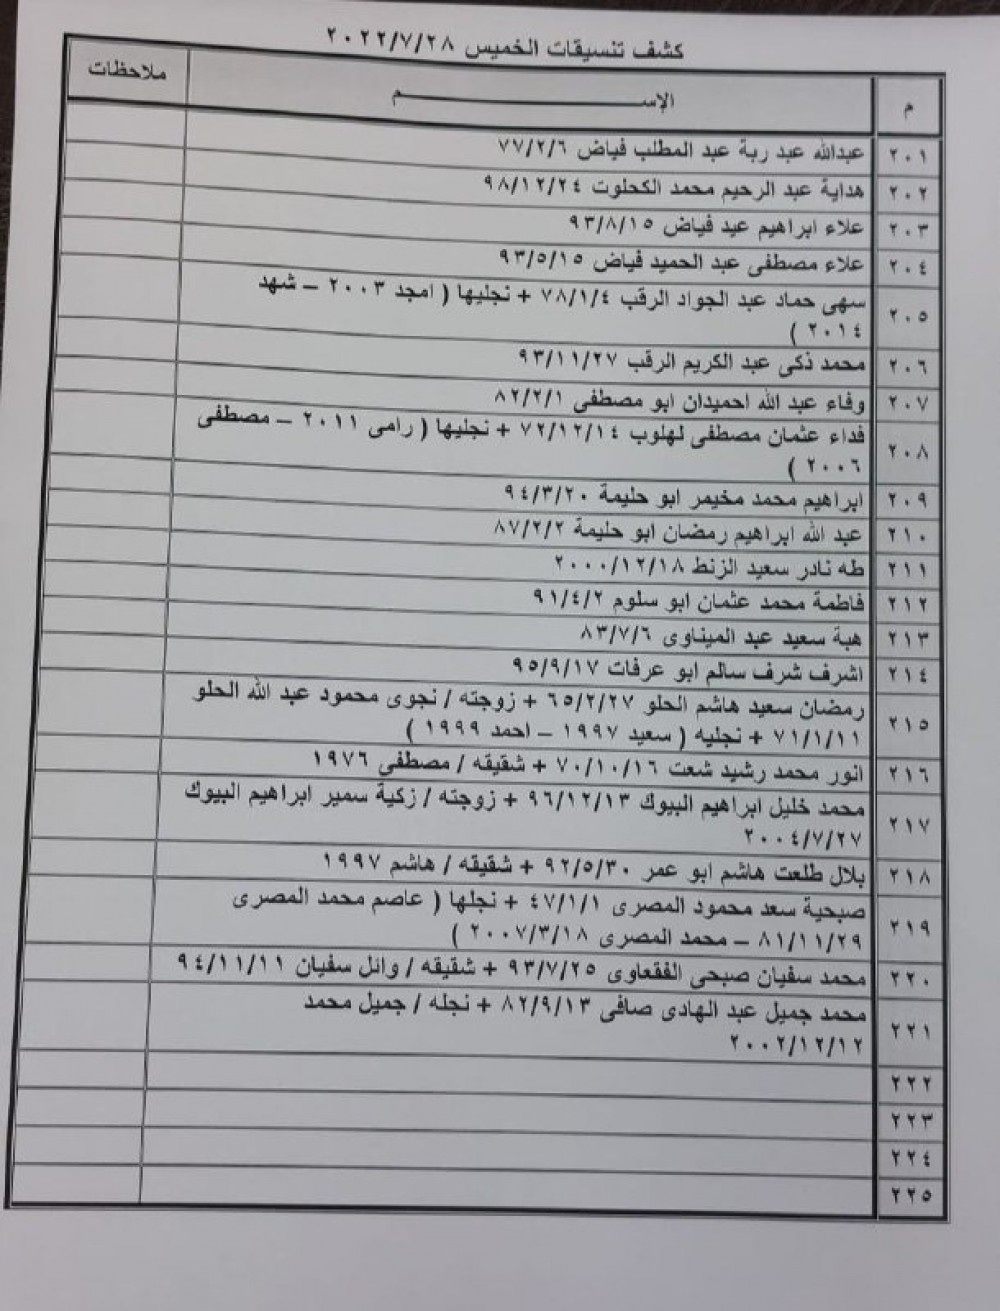 كشف تنسيقات الخميس ٢٠٢٢/٧/٢٨
م الإســــــــم ملاحظات
٢٠١ عبدالله عبد ربة عبد المطلب فياض ٧٧/٢/٦
٢٠٢ هداية عبد الرحيم محمد الكحلوت ٩٨/١٢/٢٤
٢٠٣ علاء ابراهيم عيد فياض ٩٣/٨/١٥
٢٠٤ علاء مصطفى عبد الحميد فياض ٩٣/٥/١٥
٢٠٥ سهى حماد عبد الجواد الرقب ٧٨/١/٤ + نجليها ( امجد ٢٠٠٣ – شهد
٢٠١٤ )
٢٠٦ محمد ذكى عبد الكريم الرقب ٩٣/١١/٢٧
٢٠٧ وفاء عبد الله احميدان ابو مصطفى ٨٢/٢/١
٢٠٨ فداء عثمان مصطفى لهلوب ٧٢/١٢/١٤ + نجليها ( رامى ٢٠١١ – مصطفى
٢٠٠٦ )
٢٠٩ ابراهيم محمد مخيمر ابو حليمة ٩٤/٣/٢٠
٢١٠ عبد الله ابراهيم رمضان ابو حليمة ٨٧/٢/٢
٢١١ طه نادر سعيد الزنط ٢٠٠٠/١٢/١٨
٢١٢ فاطمة محمد عثمان ابو سلوم ٩١/٤/٢
٢١٣ هبة سعيد عبد الميناوى ٨٣/٧/٦
٢١٤ اشرف شرف سالم ابو عرفات ٩٥/٩/١٧
٢١٥ رمضان سعيد هاشم الحلو ٦٥/٢/٢٧ + زوجته / نجوى محمود عبد الله الحلو
٧١/١/١١ + نجليه ( سعيد ١٩٩٧ – احمد ١٩٩٩ )
٢١٦ انور محمد رشيد شعت ٧٠/١٠/١٦ + شقيقه / مصطفى ١٩٧٦
٢١٧ محمد خليل ابراهيم البيوك ٩٦/١٢/١٣ + زوجته / زكية سمير ابراهيم البيوك
٢٠٠٤/٧/٢٧
٢١٨ بلال طلعت هاشم ابو عمر ٩٢/٥/٣٠ + شقيقه / هاشم ١٩٩٧
٢١٩ صبحية سعد محمود المصرى ٤٧/١/١ + نجلها ( عاصم محمد المصرى
٨١/١١/٢٩ – محمد المصرى ٢٠٠٧/٣/١٨ )
٢٢٠ محمد سفيان صبحى الفقعاوى ٩٣/٧/٢٥ + شقيقه / وائل سفيان ٩٤/١١/١١
٢٢١ محمد جميل عبد الهادى صافى ٨٢/٩/١٣ + نجله / جميل محمد
٢٠٠٢/١٢/١٢
٢٢٢
٢٢٣
٢٢٤
٢٢٥